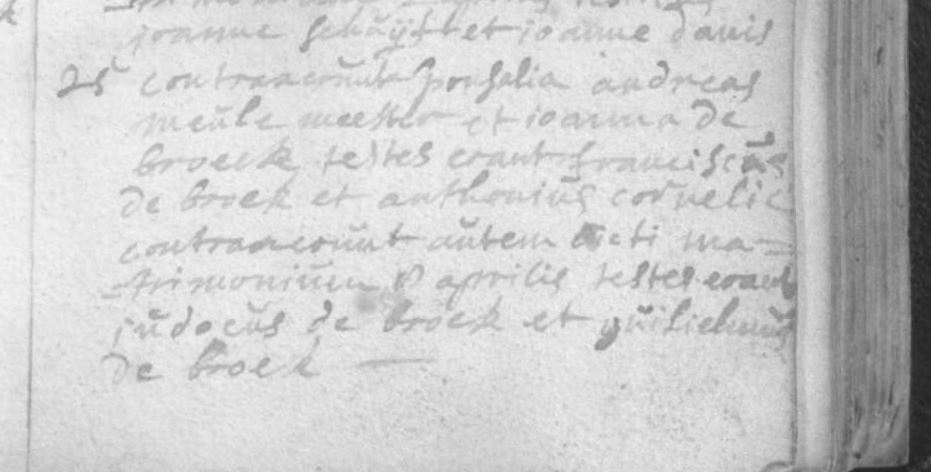 joanne schuijst et ioanne danis
25 contraxerunt sponsalia andreas
meule meester et ioanna de
broecke testes erant franciscus
de broek et anthonius cornelis
contraxerunt autem dicti ma=
=trimonium 8 aprilis testes erant
judocus de broek et guilielmus
de broek —